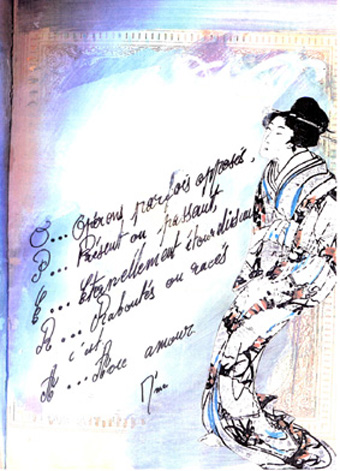 O... Opérons parfois opposés,
P... Présent ou passant,
E... Éternellement étourdissant
R... Raboutés ou racés
c'est
A... Aore amour
Mme